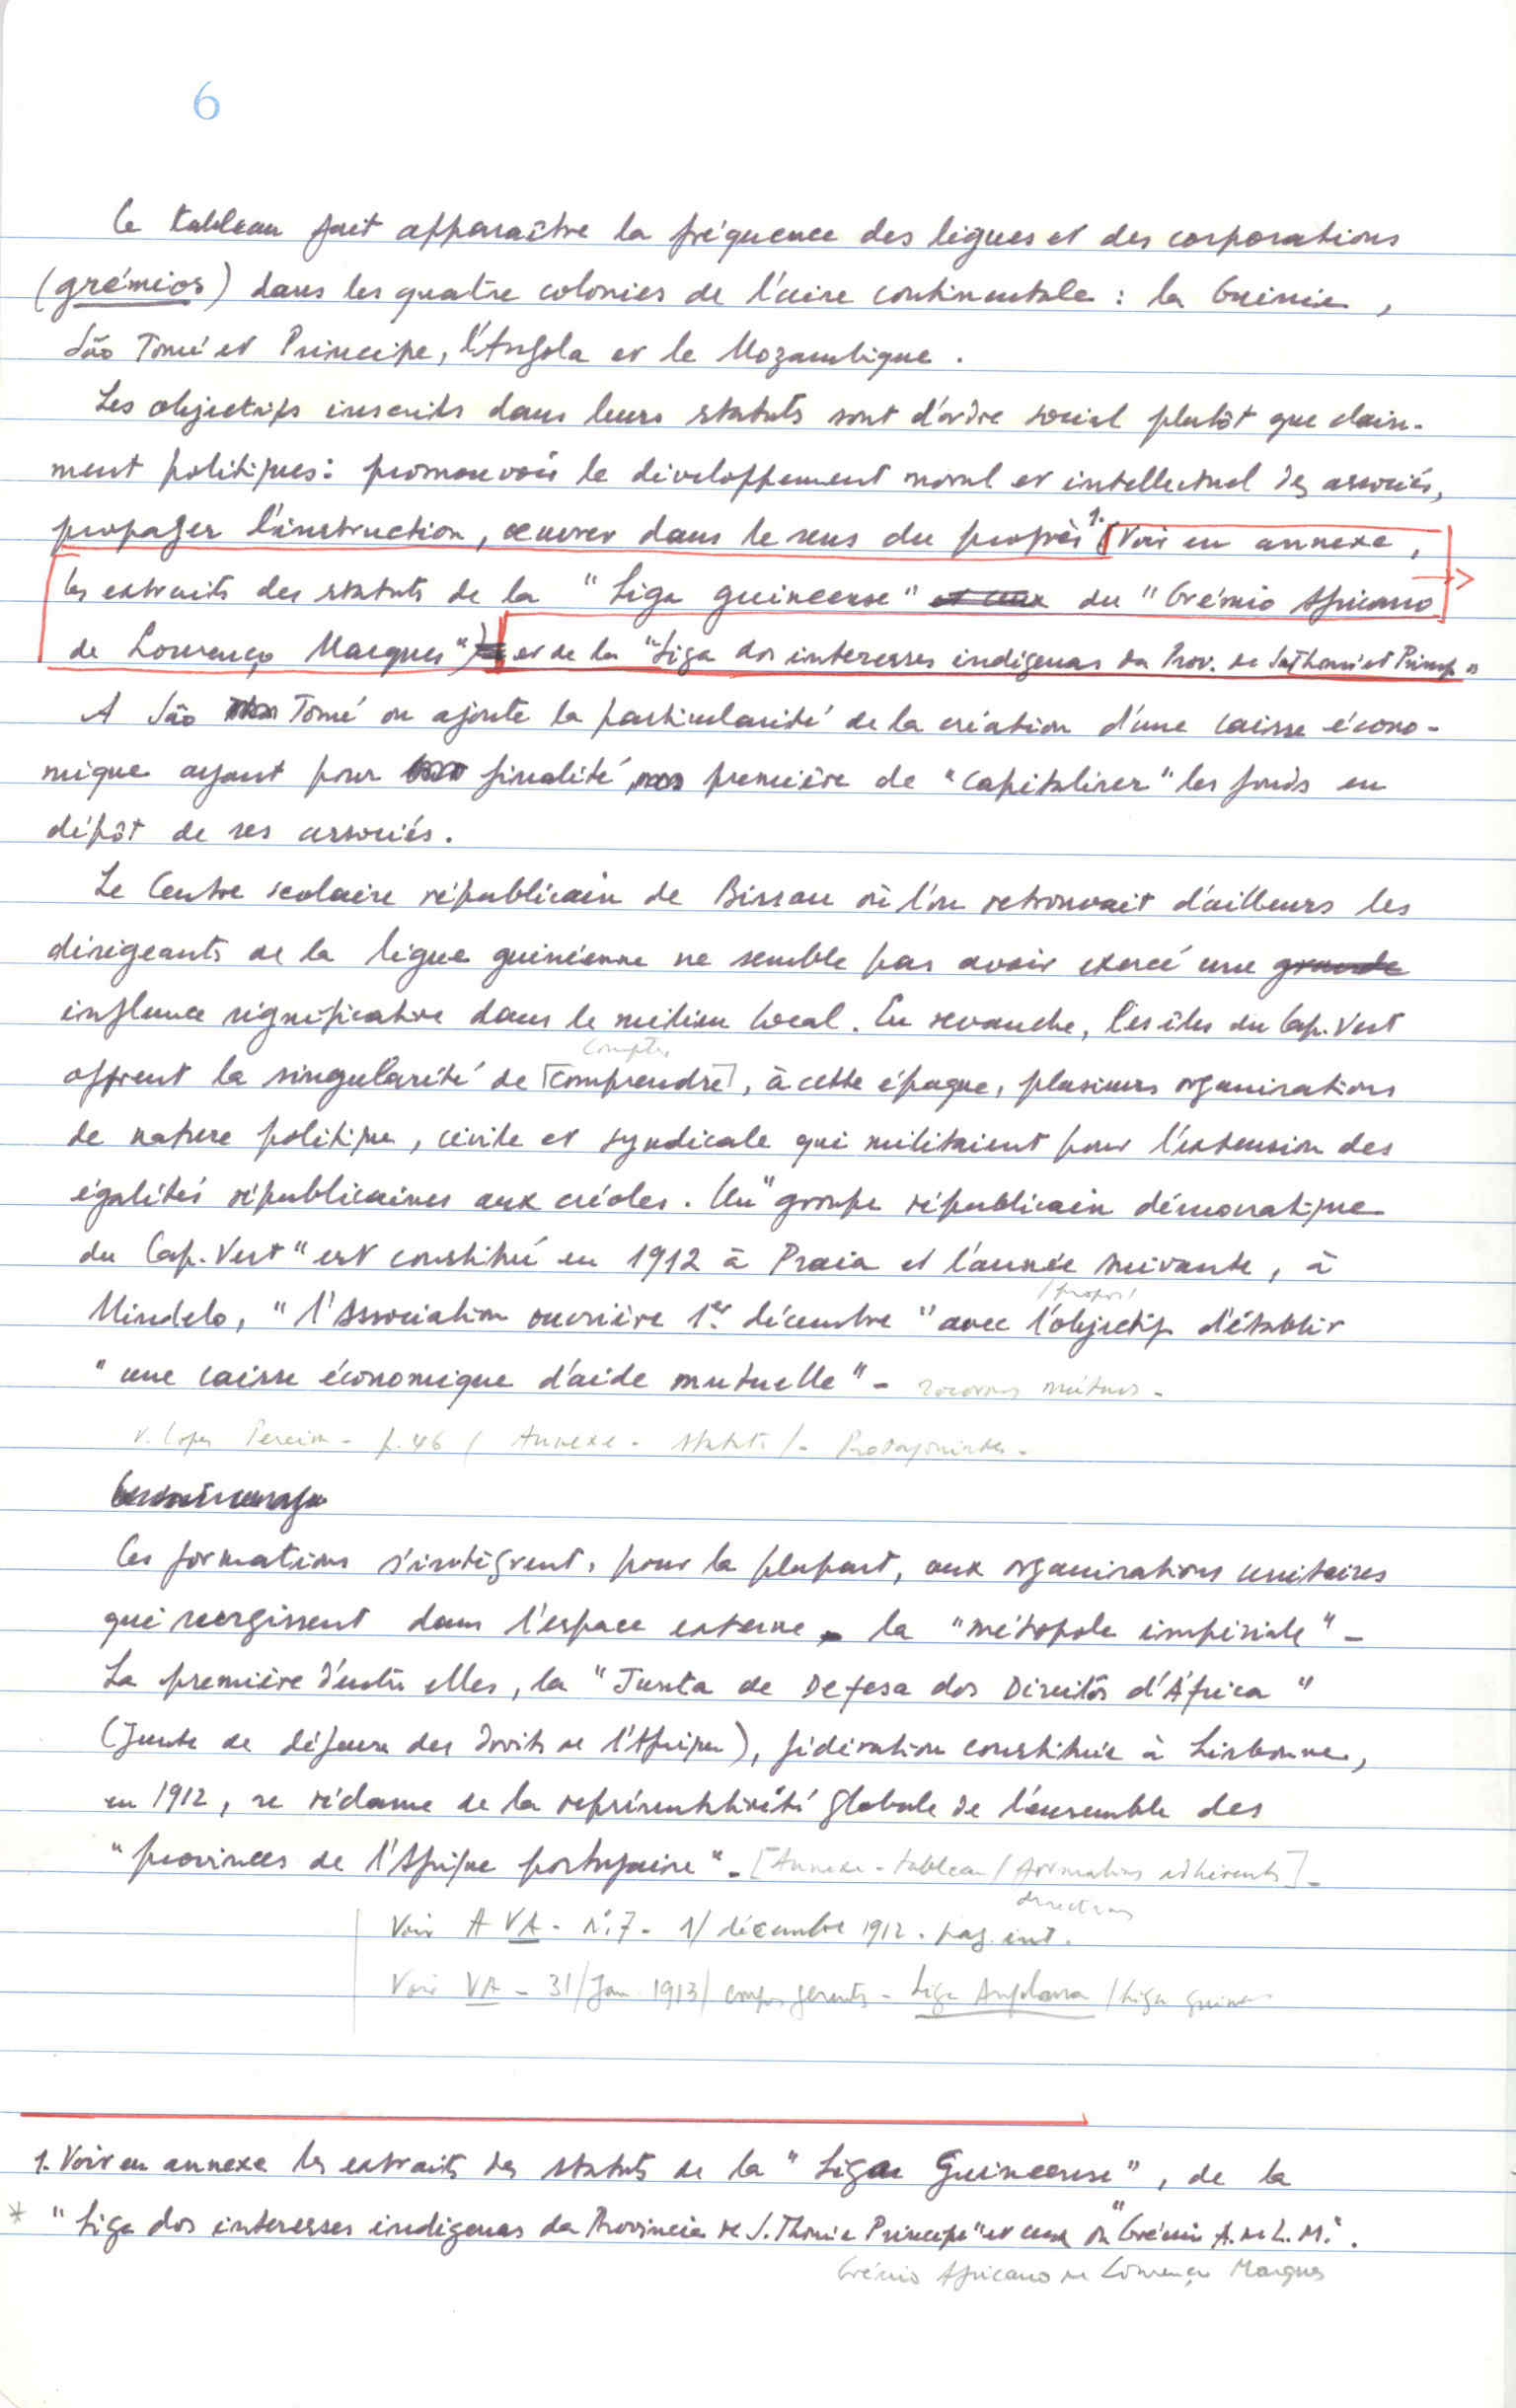 6
Ce tableau fait apparaître la fréquence des ligues et des corporations
(grémios) dans les quatre colonies de l'aire continentale : la Guinée,
São Tomé et Principe, l'Angola et le Mozambique.
Les objectifs inscrits dans leurs statuts sont d'ordre social plutôt que claire-
ment politiques : promouvoir le développement moral et intellectuel des associés,
propager l'instruction, œuvrer dans le sens du progrès 1. (Voir en annexe,
les extraits des statuts de la "Liga guineense" et ceux du "Grémio Africano
de Lourenço Marques") et de la "Liga dos interesses indigenas da Prov. de S. Thomé et Princip"
A São Tomé on ajoute la particularité de la création d'une caisse écono-
mique ayant pour finalité première de "capitaliser" les fonds en
dépôt de ses associés.
Le Centre scolaire républicain de Bissau où l'on retrouvait d'ailleurs les
dirigeants de la ligue guinéenne ne semble pas avoir exercé une grande
influence significative dans le milieu local. En revanche, les îles du Cap. Vert
compter
offrent la singularité de [comprendre], à cette époque, plusieurs organisations
de nature politique, civile et syndicale qui militaient pour l'extension des
égalités républicaines aux créoles. Un "groupe républicain démocratique
du Cap. Vert" est constitué en 1912 à Praia et l'année suivante, à
/propos/
Mindelo, "l'Association ouvrière 1er décembre" avec l'objectif d'établir
"une caisse économique d'aide mutuelle" - secours mutuels -
V. Lopes Pereira - p. 46 / Annexe - statuts / - Protagonistes -
Ces formations s'intègrent, pour la plupart, aux organisations unitaires
qui surgissent dans l'espace externe - la "métropole impériale" -
La première d'entre elles, la "Junta de Defesa dos Direitos d'África"
(Junte de défense des Droits de l'Afrique), fédération constituée à Lisbonne,
en 1912, se réclame de la représentativité globale de l'ensemble des
"provinces de l'Afrique portugaise" - [Annexe - tableau / formations adhérents] -
directions
Voir A VA - Nº 7 - 1/ décembre 1912 - pag. int.
Voir VA - 31/Jan 1913/ gerents - Liga Angolana / Liga Guineense
1. Voir en annexe les extraits des statuts de la "Liga Guineense", de la
* "Liga dos interesses indigenas da Provincia de S. Thomé e Principe" et ceux du "Grémio A. de L. M.".
Grémio Africano de Lourenço Marques